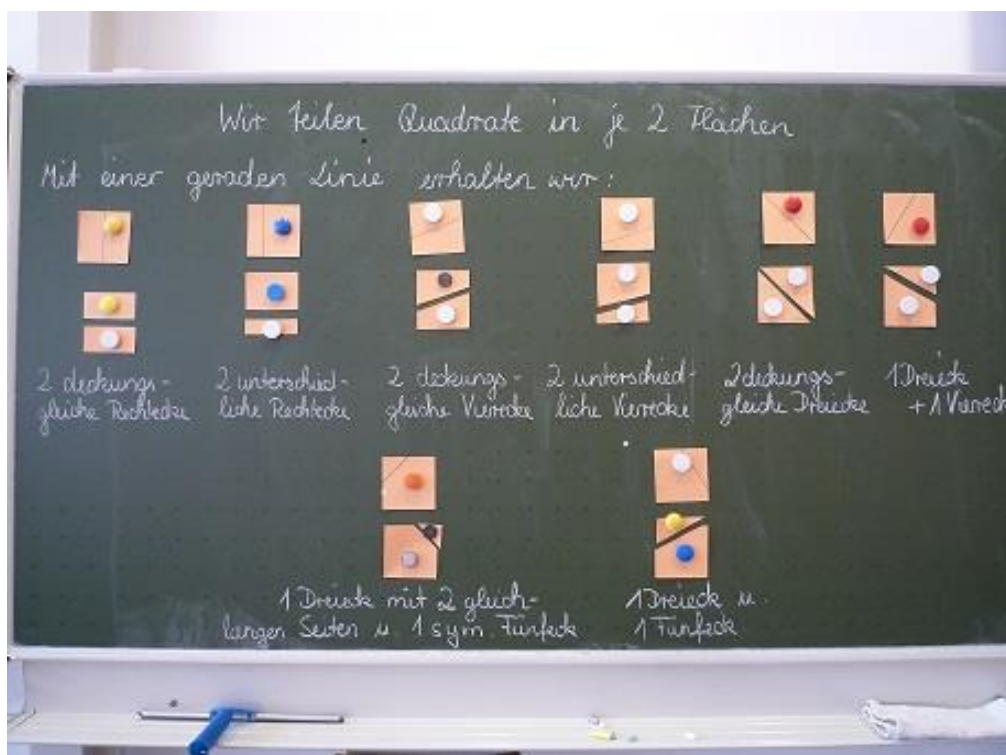 Wir teilen Quadrate in je 2 Flächen
Mit einer geraden Linie erhalten wir:
2 deckungs-
gleiche Rechtecke
2 unterschied-
liche Rechtecke
2 deckungs-
gleiche Vierecke
2 unterschied-
liche Vierecke
2 deckungs-
gleiche Dreiecke
1 Dreieck
+ 1 Viereck
1 Dreieck mit 2 gleich-
langen Seiten u. 1 sym. Fünfeck
1 Dreieck u.
1 Fünfeck